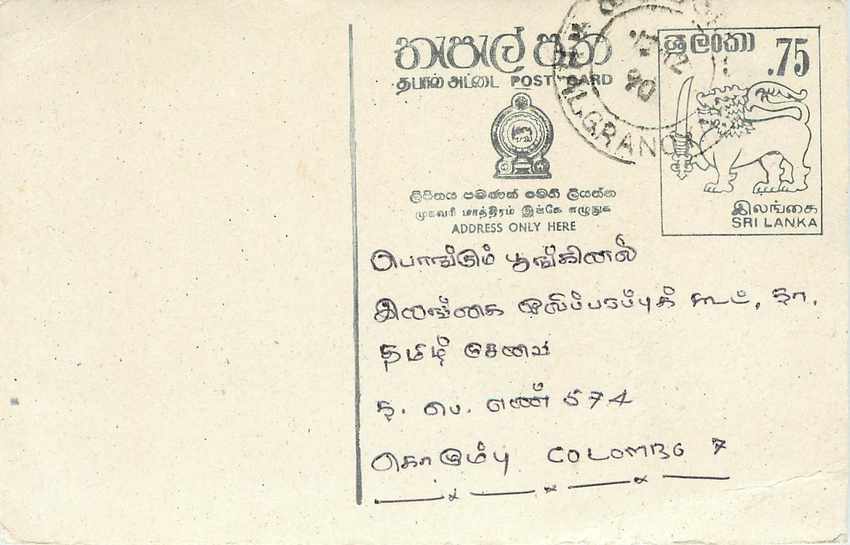 තැපැල් පත
தபால் அட்டை POST CARD
ලිපිනය පමණක් මෙහි ලියන්න
முகவரி மாத்திரம் இங்கே எழுதுக
ADDRESS ONLY HERE
ශ්‍රී ලංකා
.75
இலங்கை
SRI LANKA
90
பொங்கும் பூங்கினல்
இலங்கை ஒலிம்பரப்புக் கூட். தா.
தமிழ் சேவை
த. பெ. எண் 574
கொழும்பு COLOMBO 7